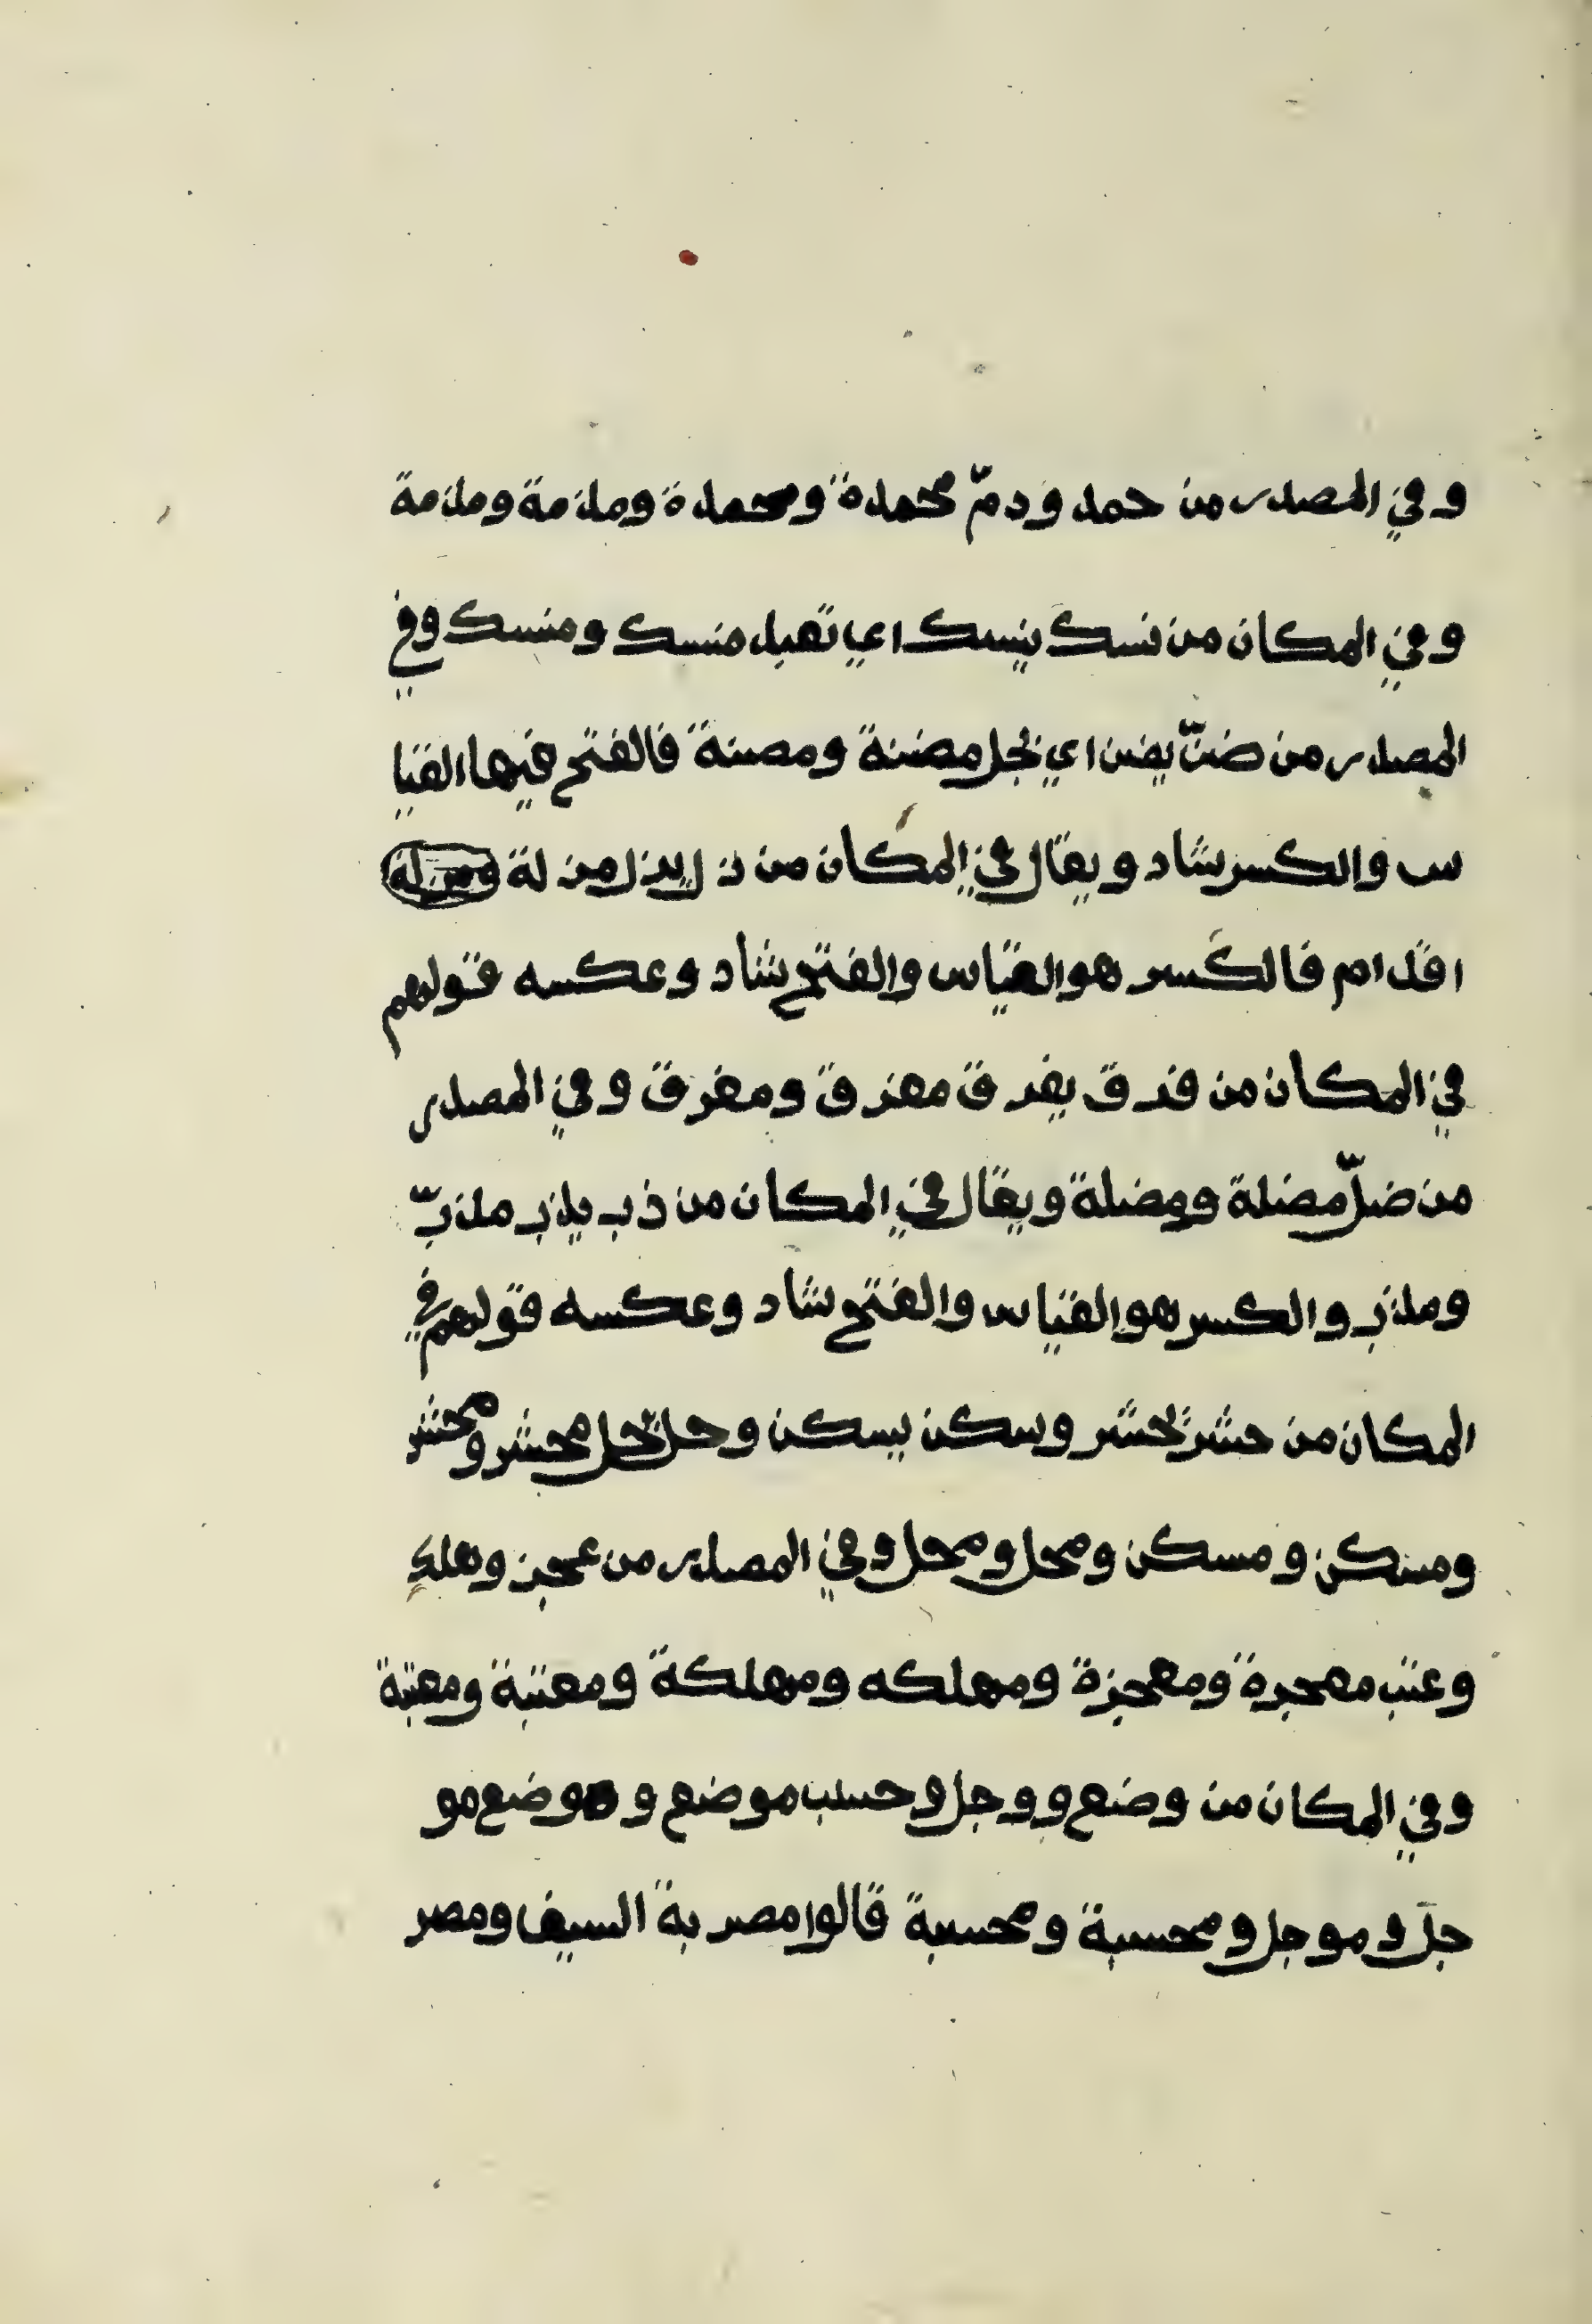 وفي المصدر من حمد ودمّ محمدة ومحمدة ومذمة ومذمة
وفي المكان من نسك ينسك اي تعبد منسك ومنسك وفي
المصدر من ضنّ يضن اي بخل مضنة ومصنة فالفتح فيها القيا
س والكسر شاد ويقال في المكان من ز ل يزل مز لة ومزلة
اقدام فالكسر هو القياس والفتح شاد وعكسه قولهم
في المكان من فرق يفرق مفرق ومفرق وفي المصدر
من ضلّ مضلة ومضلة ويقال في المكان من ذب يذب مذبّ
ومذب والكسر هو القياس والفتح شاد وعكسه قولهم في
المكان من حشر يحشر وسكن يسكن وحل يحل محشر ومحشر
ومسكن ومسكن ومحل ومحل وفي المصدر من عجز وهلك
وعتب معجزة ومعجزة ومهلكه ومهلكة ومعتبة ومعتبة
وفي المكان من وضع ووجل وحسب موضع وموضع مو
جل وموجل ومحسبة ومحسبة قالوا مضربة السيف ومضر